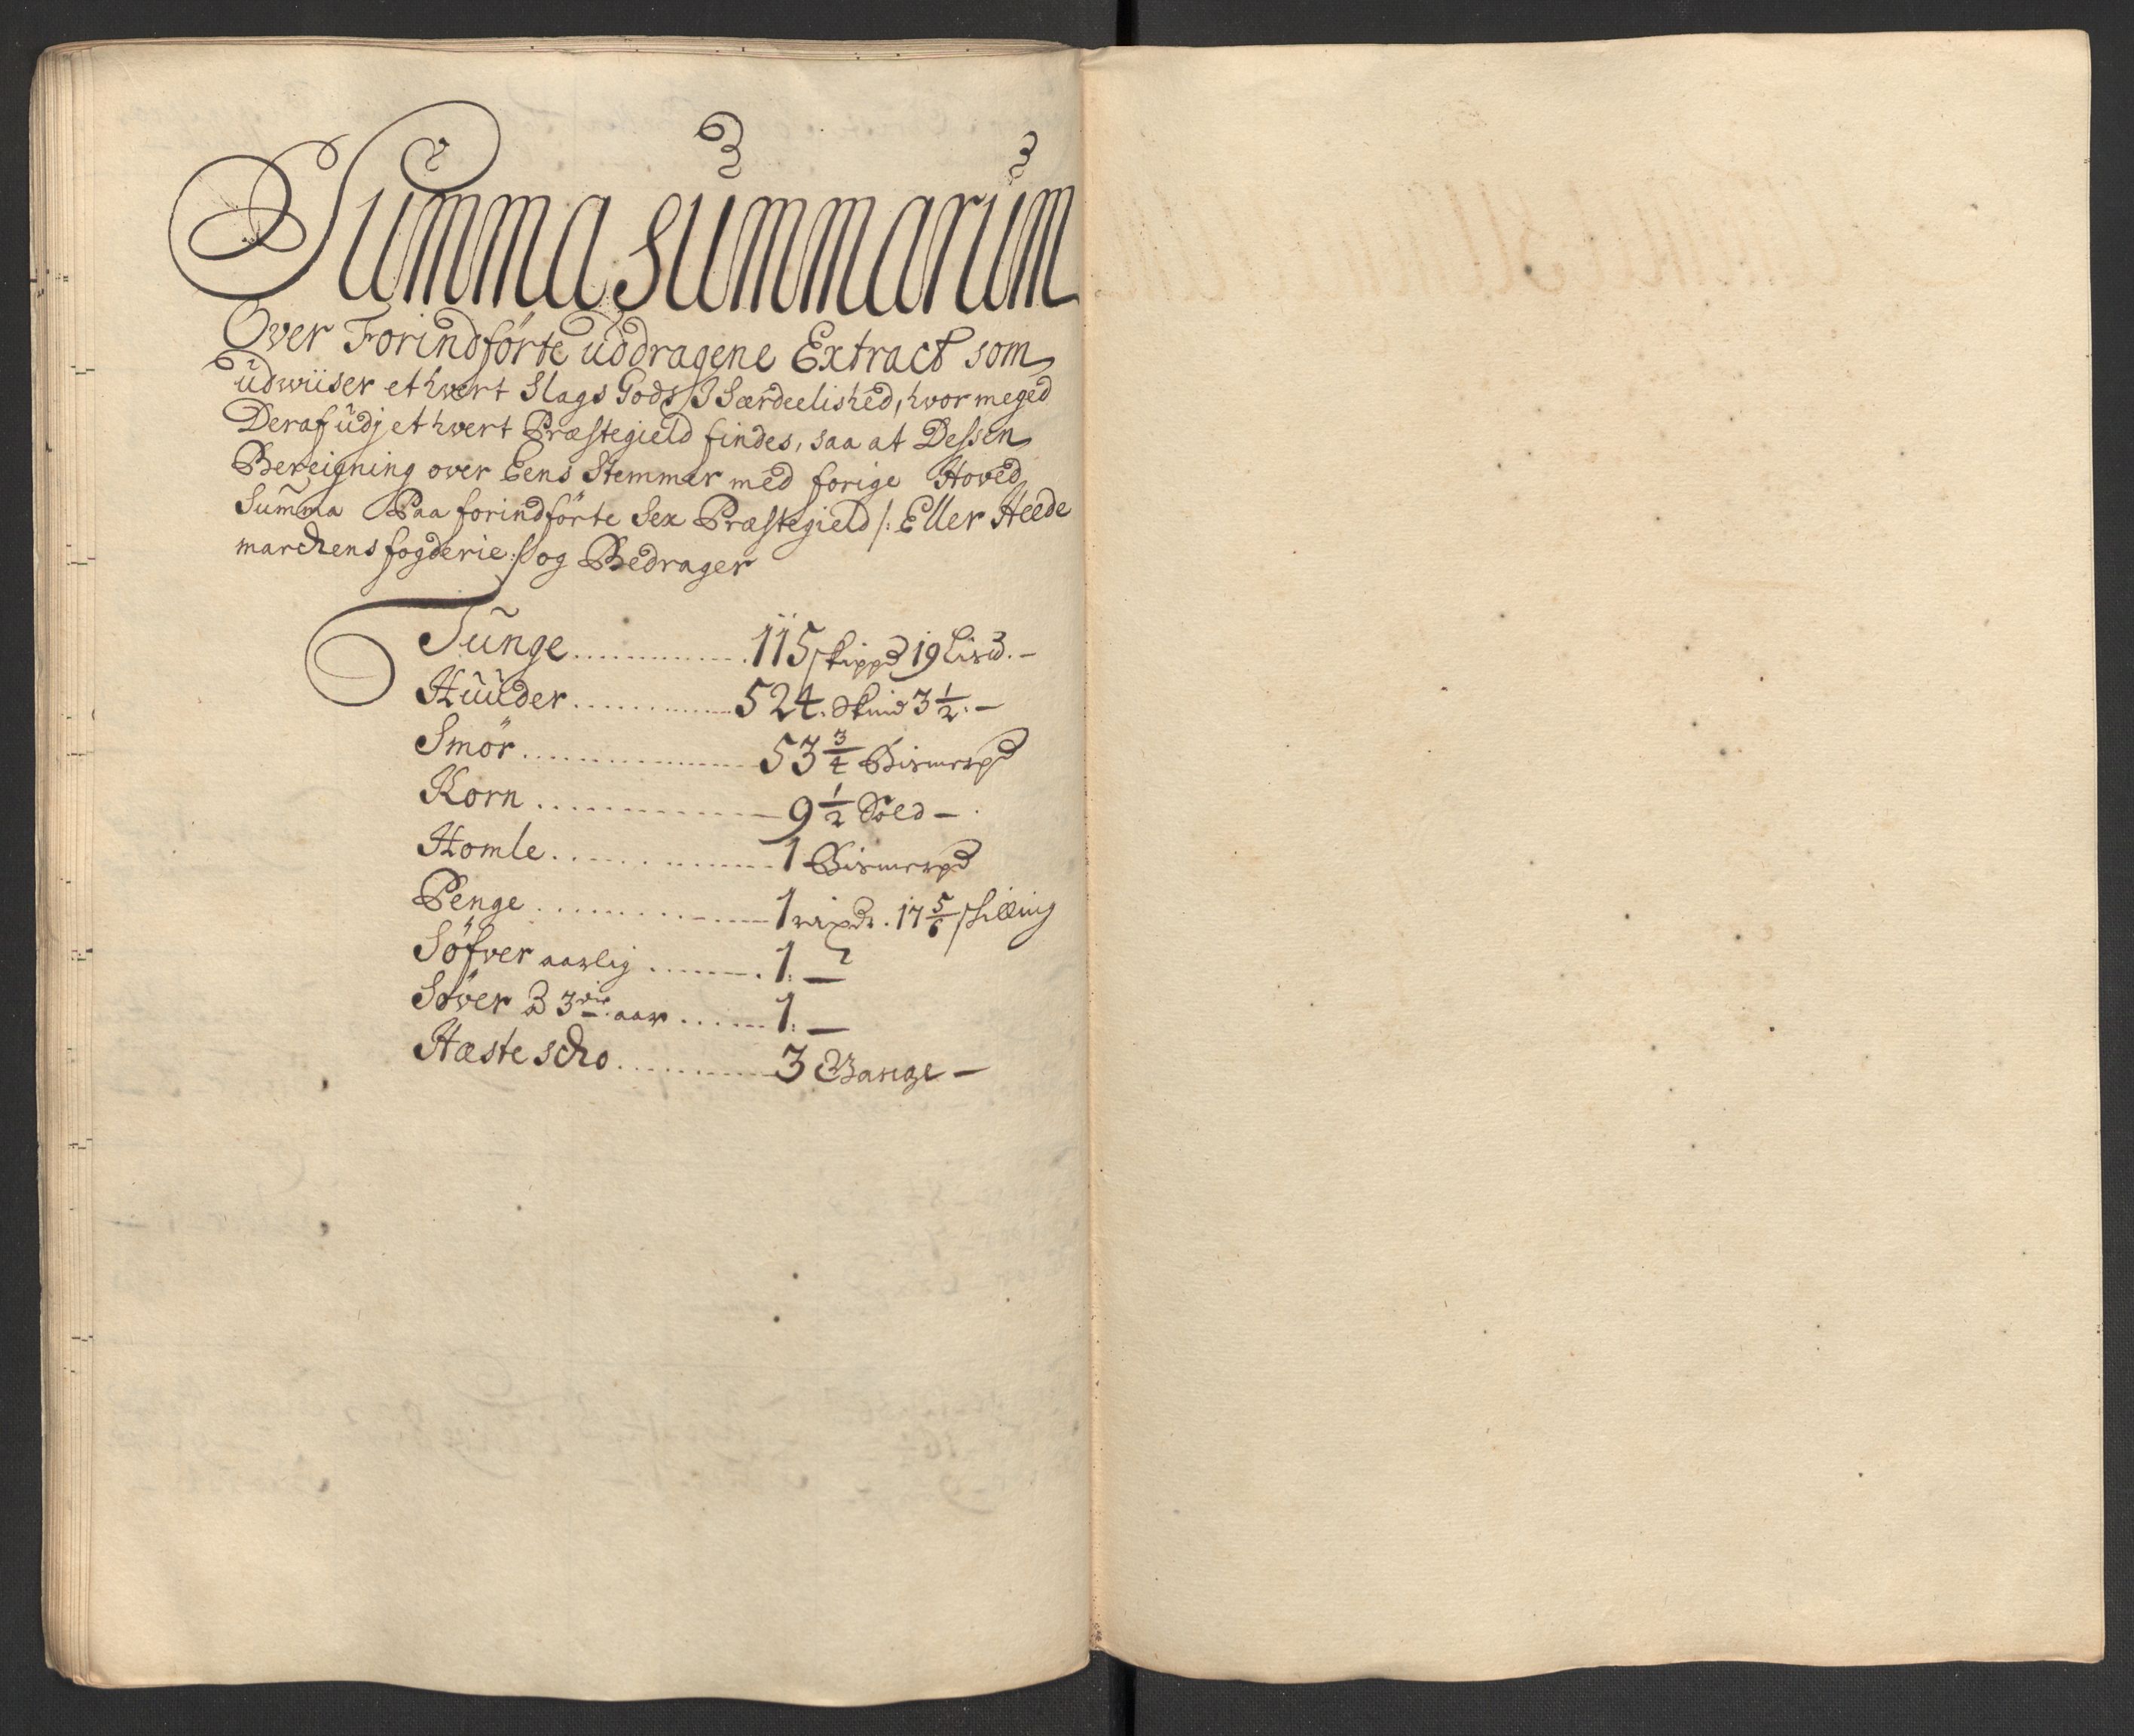 Summa Summarum
Over Forindförte uddragene Extract som
udwiiser ethvert Slags Gods I Særdeelished, hvor meged
Deraf udj ethvert Præstegield findes, saa at Dessen
Bereigning over Eens Stemmer med forige Hoved
Summa Paa forindförte Sex Præstegield /: Eller Heede
marchens fogderie :/ og Bedrager
Tunge 115 skippd 19 Lisd. -
Huuder 524. Skind 3 1/2. -
Smör 53 3/4 Bismerpd
Korn 9 1/2 Sold -
Homle 1 Bismerpd
Penge 1 rixdr. 17 5/6 skilling
Söfver aarlig 1. -
Söver 3die aar 1. -
Hæste scho 3 Gange -